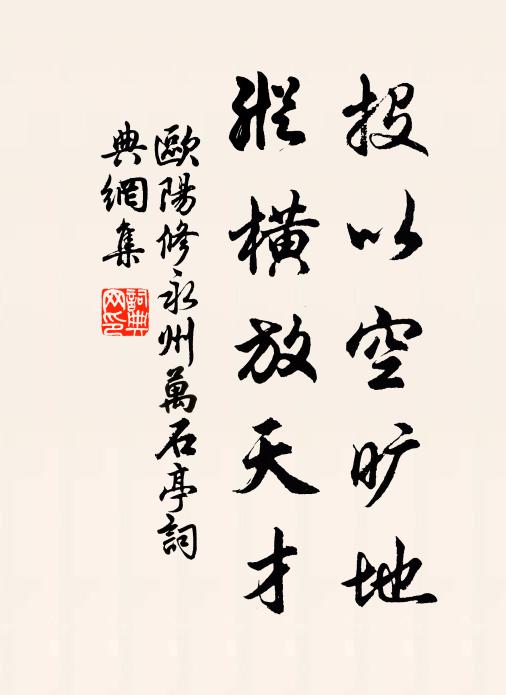 投以空旷地
縱横放天才
歐陽修永州萬石亭詞
典網集
詞典网印